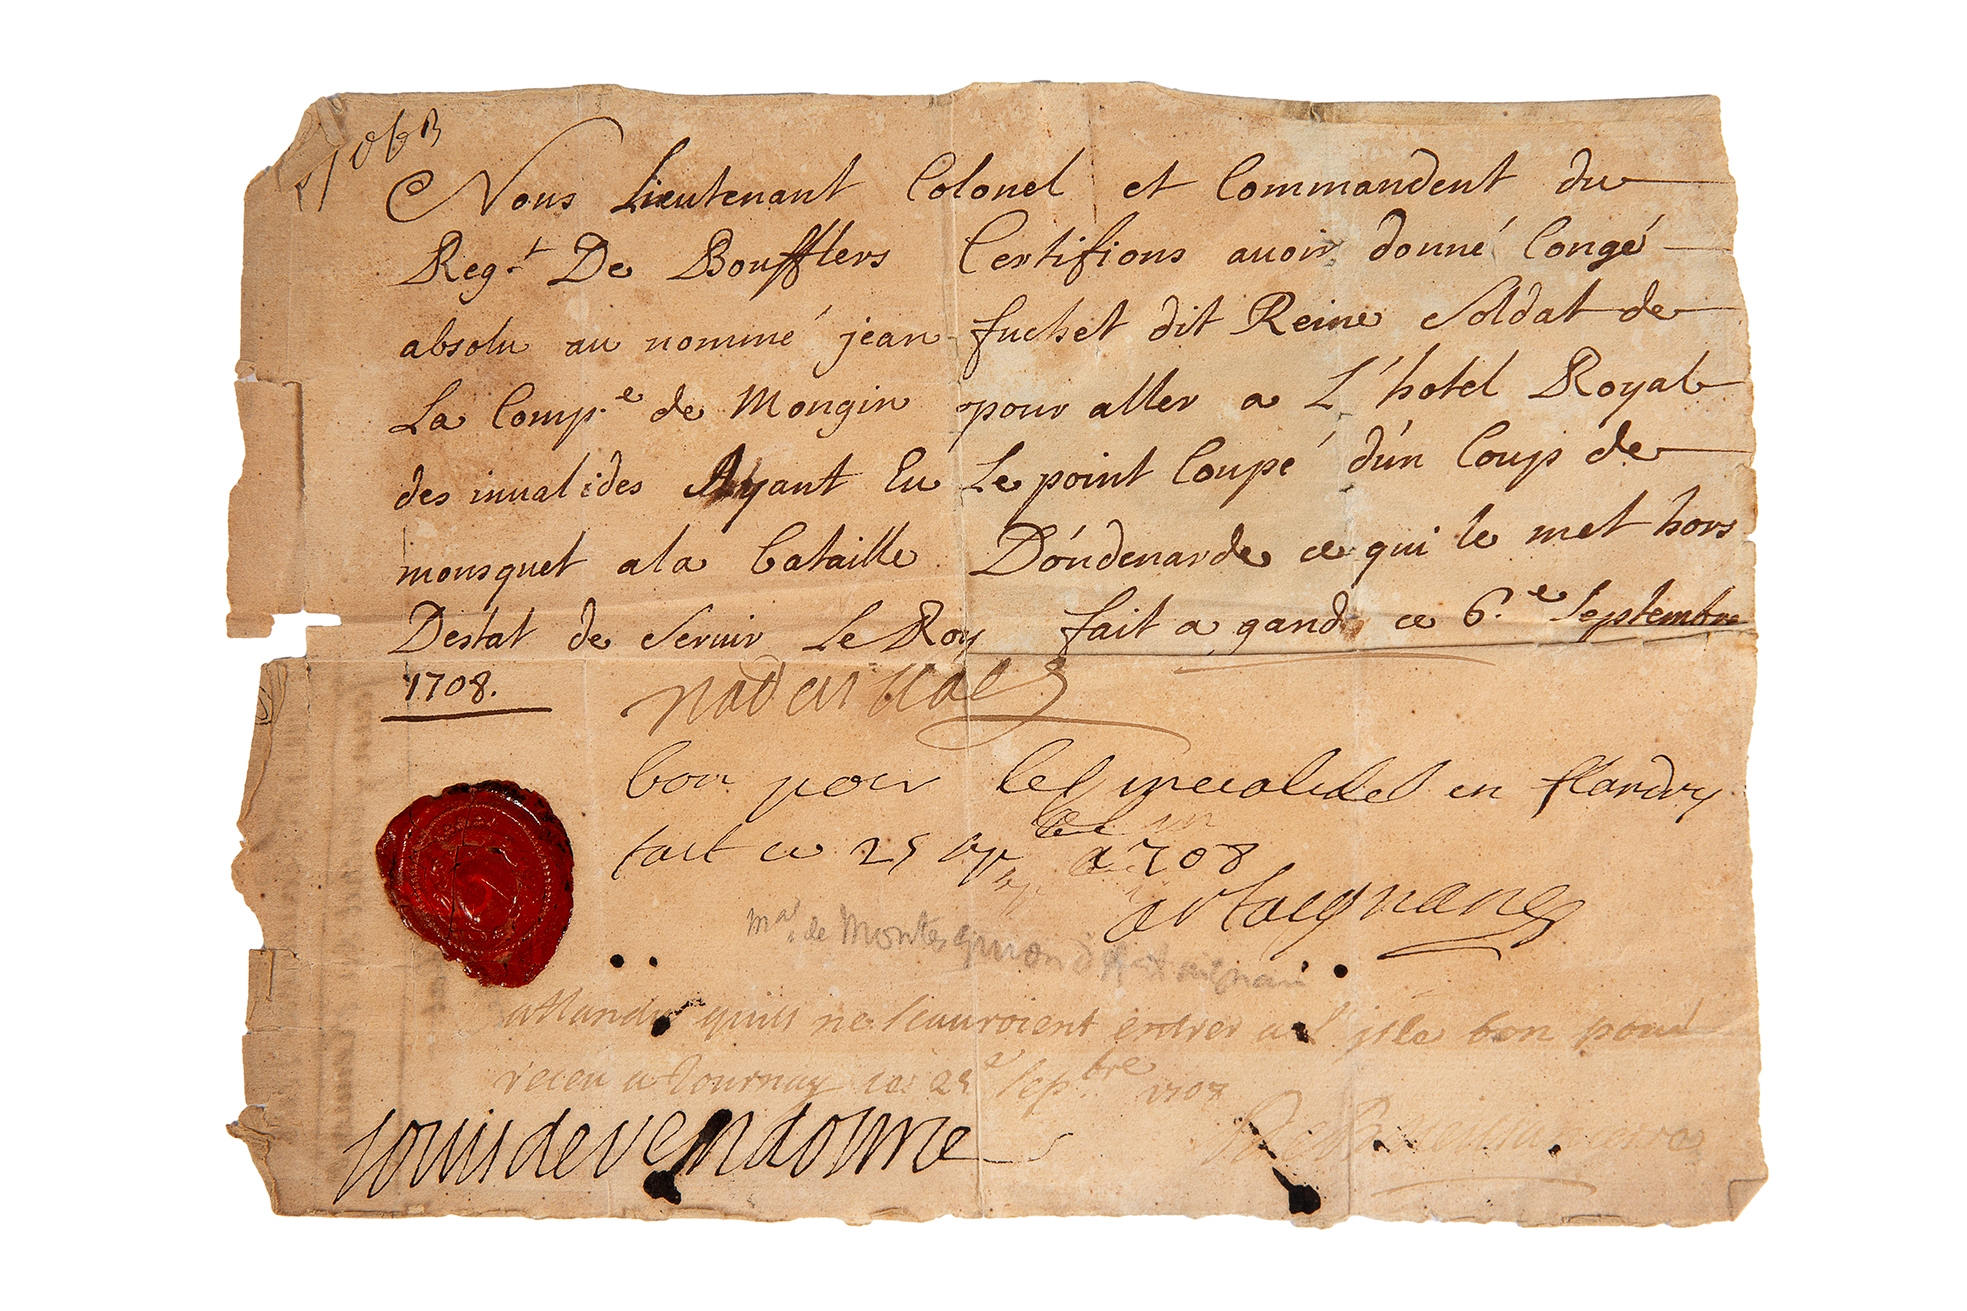 Nous Lieutenant Colonel et Commandent du
Reg.t De Boufflers Certifions auoir donné Congé
absolu au nommé jean fuchet dit Reine Soldat de
La Comp.e de Mongin pour aller a L'hotel Royal
des inualides Ayant Eu Le point Coupé d'un Coup de
mousquet a la bataille D'oudenarde ce qui le met hors
Destat de Seruir Le Roy fait a gand ce 6.e Septembre
1708.
bon pour les inualides en flandre
fait ce 25 1708
artaignan
mal de Montesquiou d'Artaignan
attandu quils ne scauroient entrer a l'isle bon pour
receu a Tournay ce 25e sepbre 1708
Louis de vendosme